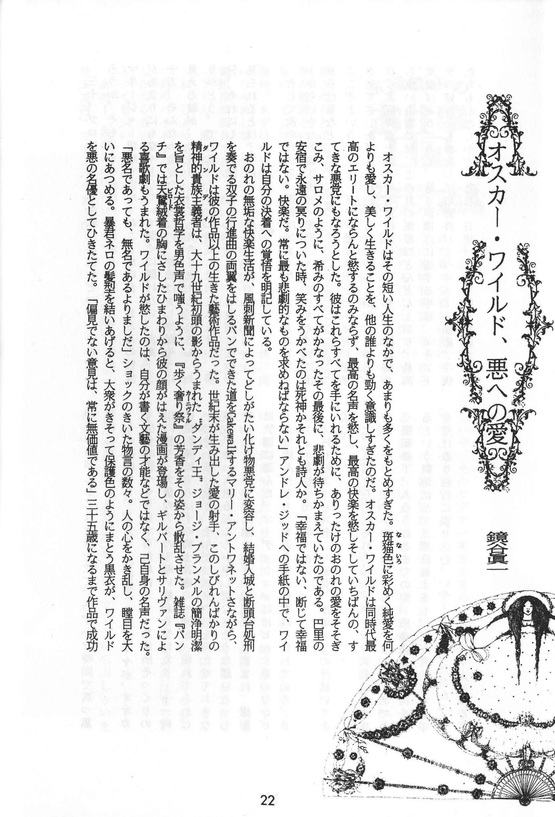 オスカー・ワイルド、悪への愛
鏡谷眞一
オスカー・ワイルドはその短い人生のなかで、あまりも多くをもとめすぎた。斑猫色に彩めく純愛を何
なないろ
よりも愛し、美しく生きることを、他の誰よりも勁く意識しすぎたのだ。オスカー・ワイルドは同時代最
高のエリートにならんと慾するのみならず、最高の名声を慾し、最高の快楽を慾しそしていちばんの、す
てきな悪党にもなろうとした。彼はこれらすべてを手にいれるために、ありったけのおのれの愛をそそぎ
こみ、サロメのように、希みのすべてがかなったその最後に、悲劇が待ちかまえていたのである。巴里の
安宿で永遠の冥りについた時、笑みをうかべたのは死神かそれとも詩人か。「幸福ではない、断じて幸福
ではない。快楽だ。常に最も悲劇的なものを求めねばならない」アンドレ・ジッドへの手紙の中で、ワイ
ルドは自分の決着への覚悟を明記している。
おのれの無垢な快楽生活が、風刺新聞によってどしがたい化け物悪党に変容し、結婚入城と断頭台処刑
を奏でる双子の行進曲の両翼をはしるパンでできた道をcakewalkするマリー・アントワネットさながら、
ワイルドは彼の作品以上の生きた藝術作品だった。世紀末が生み出した愛の射手、このしびれんばかりの
精神的貴族主義者は、大十九世紀初頭の影からうまれた〝ダンディ王〟ジョージ・ブランメルの簡浄明潔
ダンデ
を旨とした衣裳哲学を男色声で嗤うように、『歩く奢り祭』の芳香をその姿から散乱させた。雑誌『パン
カーニヴァル
チ』では天鵞絨着の胸にさしたひまわりから彼の顔がはえた漫画が登場し、ギルバートとサリヴァンによ
ビロード
る喜歌劇もうまれた。ワイルドが慾したのは、自分が書く文藝の才能などではなく、己自身の名声だった。
「悪名であっても、無名であるよりましだ」ショックのきいた物言の数々。人の心をかき乱し、瞠目を大
いにあつめる。暴君ネロの髪型を結いあげると、大衆がきそって保護色のようにまとう黒衣が、ワイルド
を悪の名優としてひきたてた。「偏見でない意見は、常に無価値である」三十五歳になるまで作品で成功
22